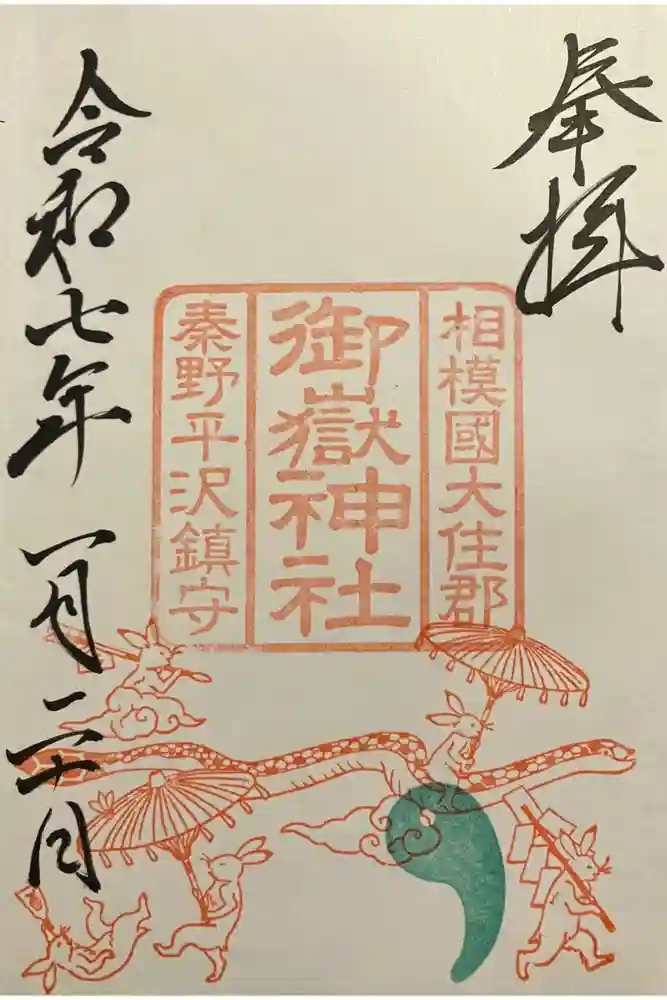 奉拝
相模國大住郡
御嶽神社
秦野平沢鎮守
令和七年一月二十日